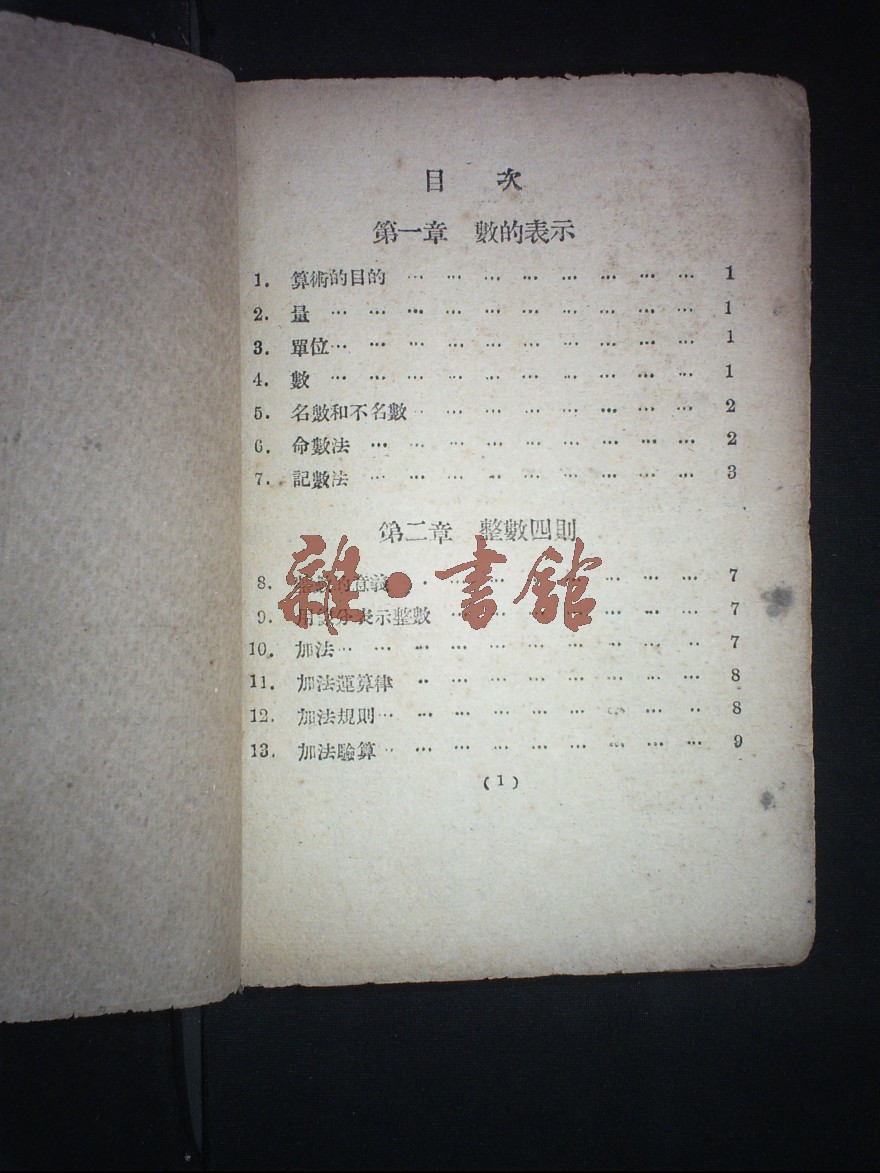 目 次
第一章 數的表示
1. 算術的目的 … … … … … … … … 1
2. 量 … … … … … … … … … … 1
3. 單位 … … … … … … … … … … 1
4. 數 … … … … … … … … … … 1
5. 名數和不名數 … … … … … … … … 2
6. 命數法 … … … … … … … … … 2
7. 記數法 … … … … … … … … … 3
第二章 整數四則
8. 整數的意義 … … … … … … … … 7
9. 用線分表示整數 … … … … … … … 7
10. 加法 … … … … … … … … … … 7
11. 加法運算律 … … … … … … … … 8
12. 加法規則 … … … … … … … … … 8
13. 加法驗算 … … … … … … … … … 9
(1)
雜·書館